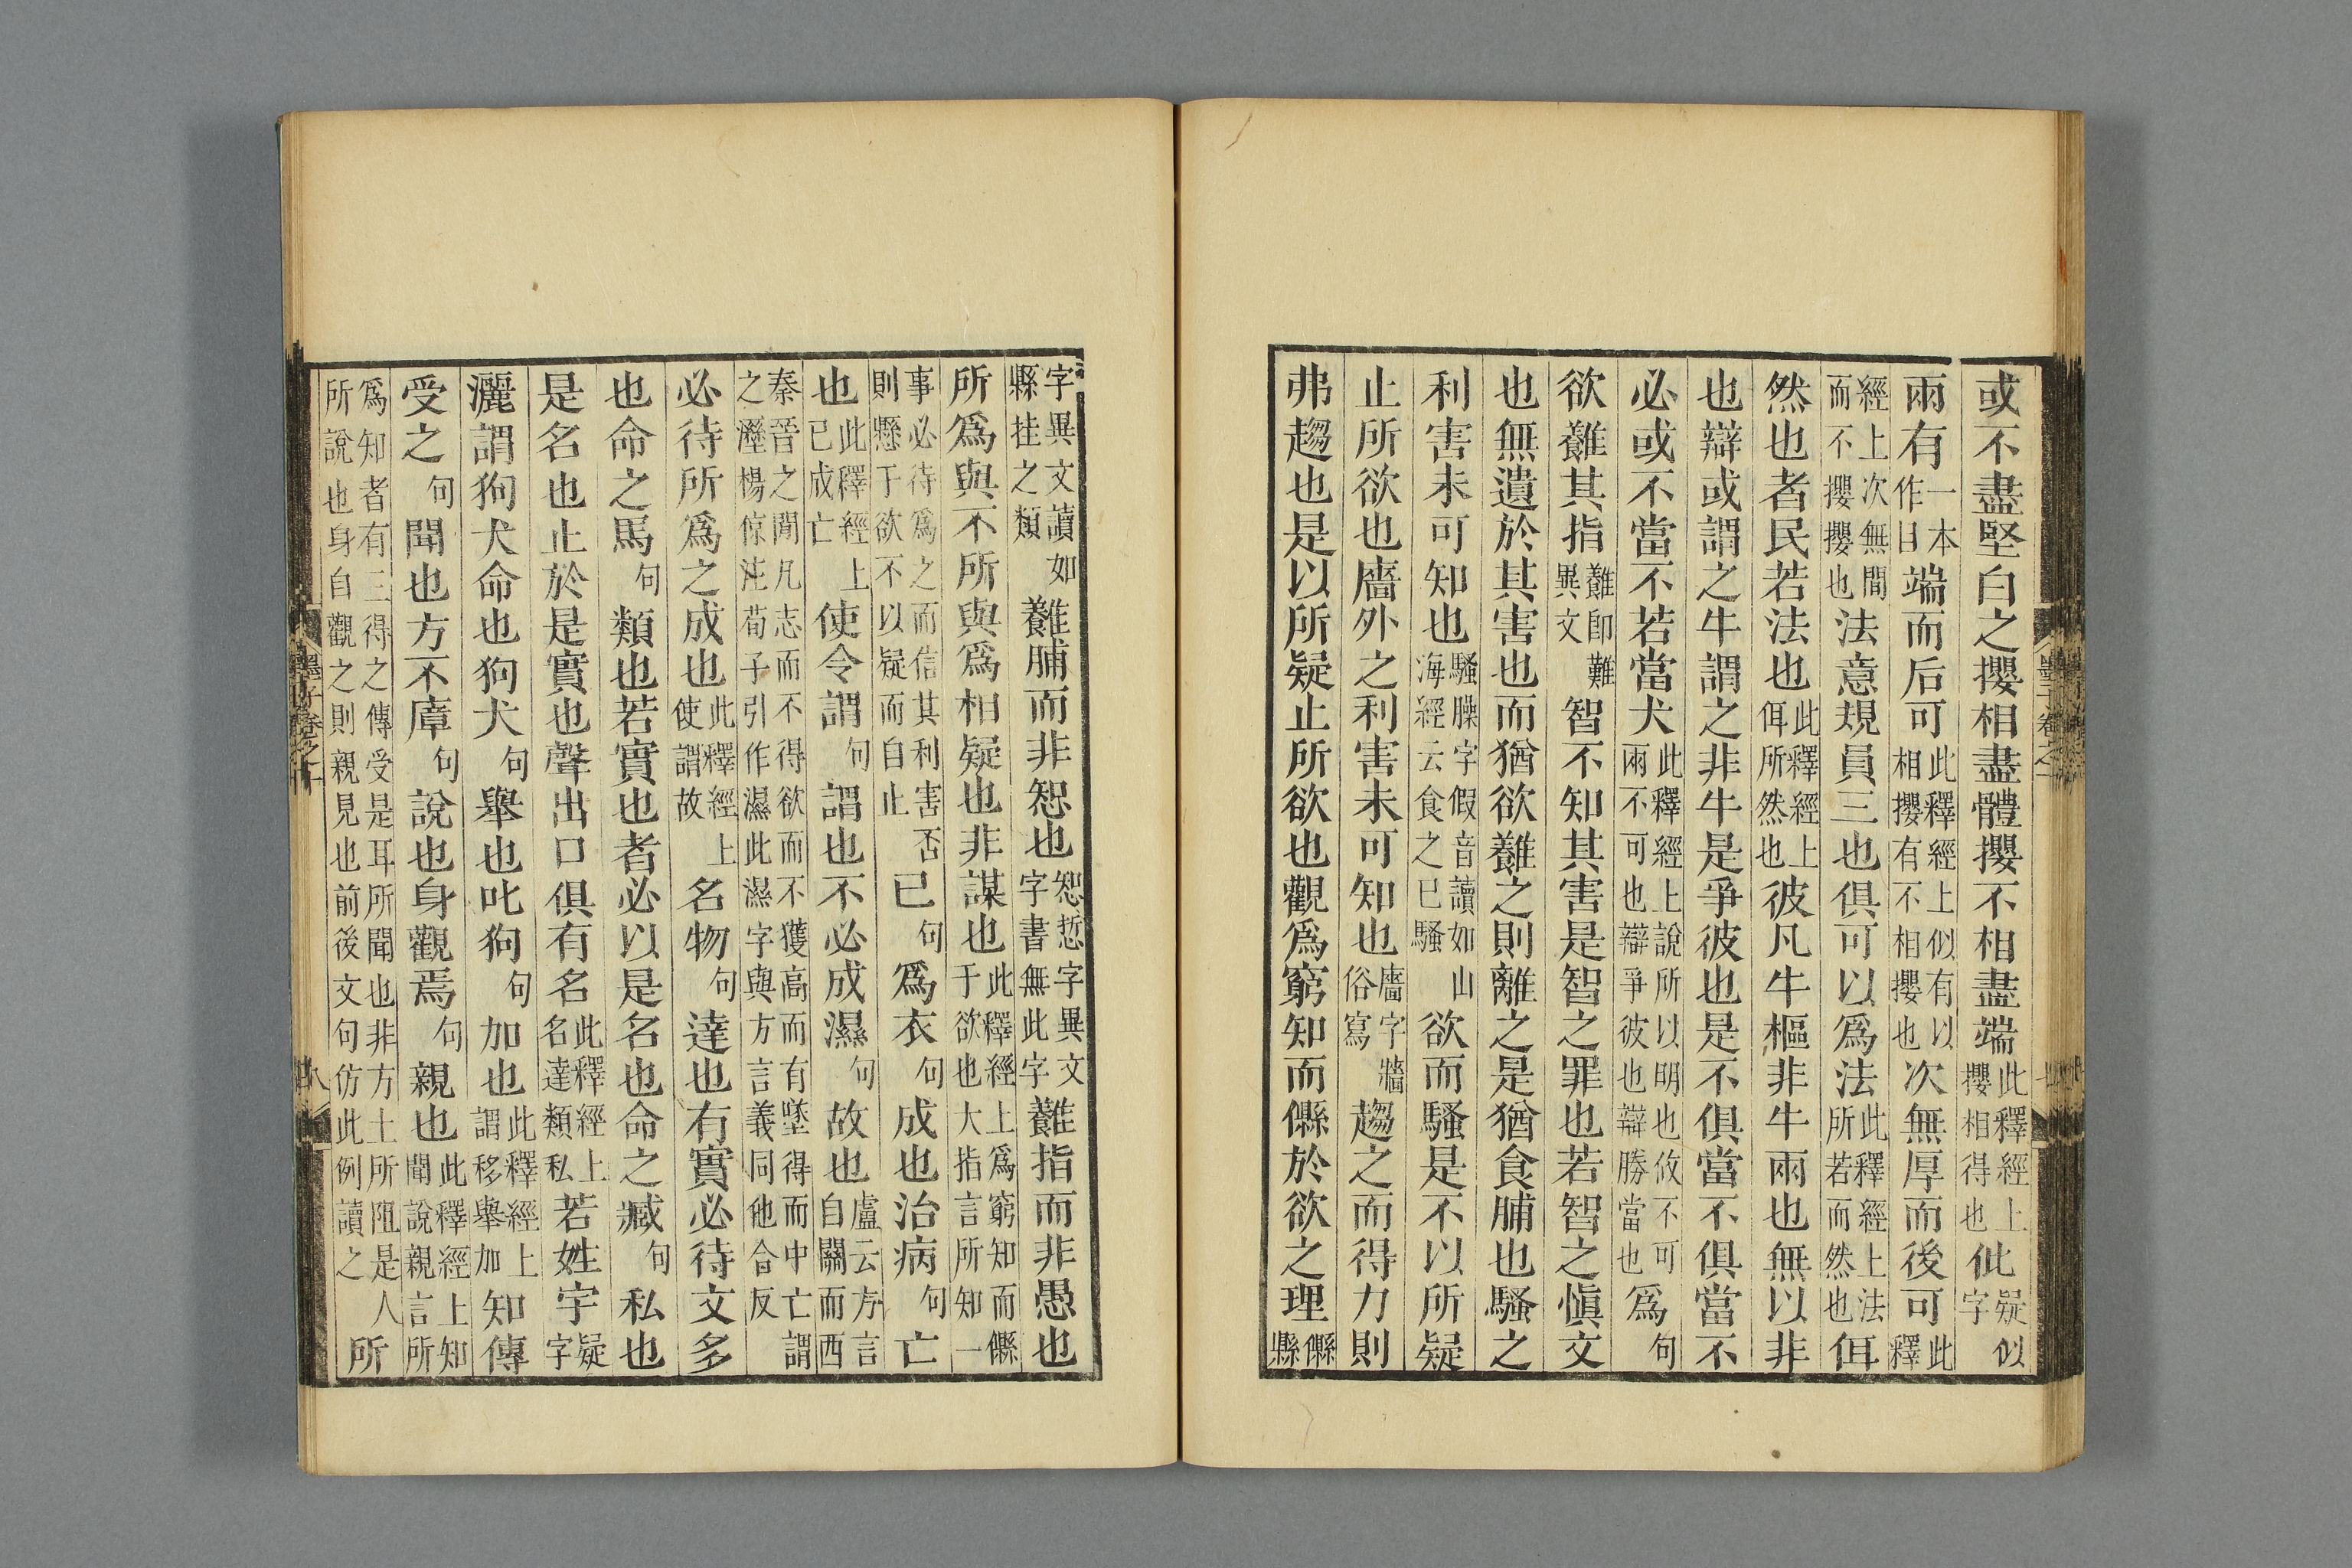 或不盡堅白之攖相盡體攖不相盡端此釋經上攖相得也仳疑似字
兩有一本作日端而后可此釋經上似有以相攖有不相攖也次無厚而後可此釋
經上次無間而不攖攖也法意規員三也俱可以爲法此釋經上法所若而然也佴
然也者民若法也此釋經上佴所然也彼凡牛樞非牛兩也無以非
也辯或謂之牛謂之非牛是爭彼也是不俱當不俱當不
必或不當不若當犬此釋經上說所以明也攸不可兩不可也辯爭彼也辯勝當也爲句
欲䕼其指䕼卽難異文智不知其害是智之罪也若智之愼文
也無遺於其害也而猶欲䕼之則離之是猶食脯也騷之
利害未可知也騷臊字假音讀如山海經云食之已騷欲而騷是不以所疑
止所欲也廧外之利害未可知也廧字牆俗寫趨之而得力則
弗趨也是以所疑止所欲也觀爲窮知而縣於欲之理縣縣
字異文讀如縣挂之類䕼脯而非恕也恕惁字異文字書無此字䕼指而非愚也
所爲與不所與爲相疑也非謀也此釋經上爲窮知而縣于欲也大指言所知一
事必待爲之而信其利害否則懸于欲不以疑而自止已句爲衣句成也治病句亡
也此釋經上已成亡使令謂句謂也不必成濕句故也盧云方言自關而西
秦晉之閒凡志而不得欲而不獲高而有墜得而中亡謂之溼楊倞注荀子引作濕此濕字與方言義同他合反
必待所爲之成也此釋經上使謂故名物句達也有實必待文多
也命之馬句類也若實也者必以是名也命之臧句私也
是名也止於是實也聲出口俱有名此釋經上名達類私若姓宇疑字
灑謂狗犬命也狗犬句舉也叱狗句加也此釋經上謂移舉加知傳
受之句聞也方不㢓句說也身觀焉句親也此釋經上知聞說親言所
爲知者有三得之傳受是耳所聞也非方土所阻是人所說也身自觀之則親見也前後文句仿此例讀之所